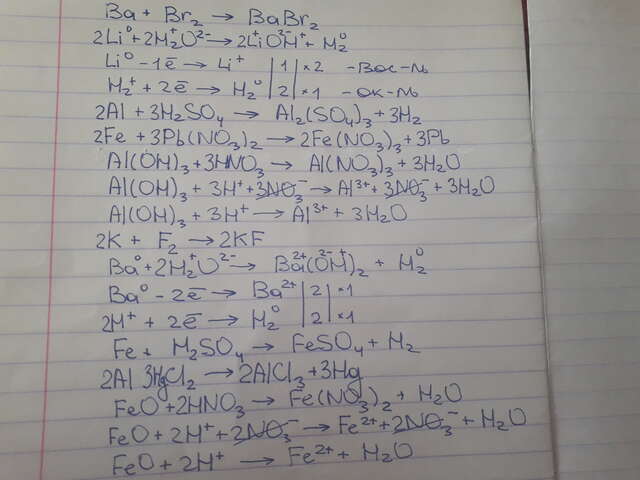 Ba + Br₂ → BaBr₂
2Li⁰ + 2H₂⁺O²⁻ → 2Li⁺O²⁻H⁺ + H₂⁰
Li⁰ - 1ē → Li⁺ | 1 | ×2 - Вос-ль
H₂⁺ + 2ē → H₂⁰ | 2 | ×1 - Ок-ль
2Al + 3H₂SO₄ → Al₂(SO₄)₃ + 3H₂
2Fe + 3Pb(NO₃)₂ → 2Fe(NO₃)₃ + 3Pb
Al(OH)₃ + 3HNO₃ → Al(NO₃)₃ + 3H₂O
Al(OH)₃ + 3H⁺ + 3NO₃⁻ → Al³⁺ + 3NO₃⁻ + 3H₂O
Al(OH)₃ + 3H⁺ → Al³⁺ + 3H₂O
2K + F₂ → 2KF
Ba⁰ + 2H₂⁺O²⁻ → Ba²⁺(O²⁻H⁺)₂ + H₂⁰
Ba⁰ - 2ē → Ba²⁺ | 2 | ×1
2H⁺ + 2ē → H₂⁰ | 2 | ×1
Fe + H₂SO₄ → FeSO₄ + H₂
2Al 3HgCl₂ → 2AlCl₃ + 3Hg
FeO + 2HNO₃ → Fe(NO₃)₂ + H₂O
FeO + 2H⁺ + 2NO₃⁻ → Fe²⁺ + 2NO₃⁻ + H₂O
FeO + 2H⁺ → Fe²⁺ + H₂O